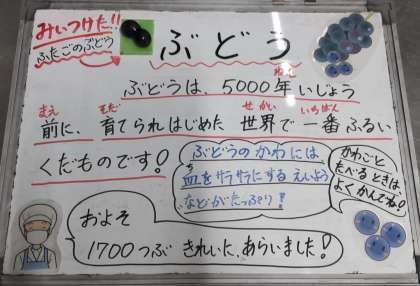 みぃつけた!!
ふたごのぶどう
ぶどう
ぶどうは、5000年いじょう
ねん
前に、育てられはじめた 世界で一番ふるい
まえ そだ せかい いちばん
くだものです!
ぶどうのかわには
血をサラサラにするえいよう
ち
などがたっぷり!!
かわごと
たべるときは
よくかんでね!
およそ
1700つぶ きれいに、あらいました!